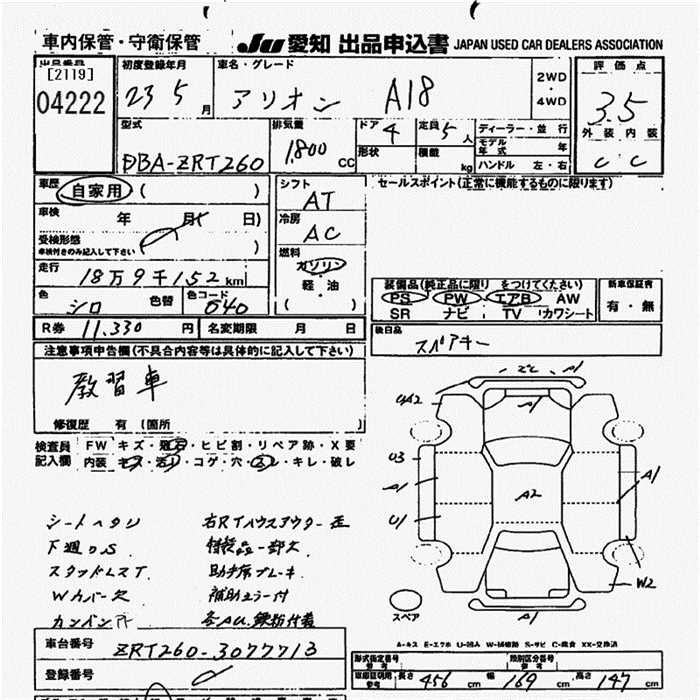 車内保管・守衛保管
JU 愛知 出品申込書 JAPAN USED CAR DEALERS ASSOCIATION
出品番号
[2119]
04222
初度登録年月
23 5 月
車名・グレード
アリオン A18
2WD
・
4WD
評価点
3.5
外装 内装
C C
型式
DBA-ZRT260
排気量
1,800 CC
ドア 4
形状
定員 5 人
積載 kg
ディーラー・並行
モデル年式 年
ハンドル 左・右
車歴 自家用 ( )
車検 年 月 日)
受検形態
車検付きのみ記入して下さい ( )
走行
18万9千152 km
色 シロ 色替 色コード 040
R券 11,330 円 名変期限 月 日
シフト
AT
冷房
AC
燃料
ガソリン
(軽・油)
セールスポイント(正常に機能するものに限ります)
装備品(純正品に限り をつけてください)
PS PW エアB AW
SR ナビ TV カワシート
新車保証書
有・無
後日品
スペアキー
注意事項申告欄(不具合内容等は具体的に記入して下さい)
教習車
修復歴 有 (箇所 )
検査員 FW キズ・飛石・ヒビ割・リペア跡・X要
記入欄 内装 キズ・汚れ・コゲ・穴・スレ・キレ・破レ
シートヘタリ
下廻りS
スタッドレスT
Wカバー欠
カンバン戸
右RTハウスアウター歪
特装品一部欠
助手席ブレーキ
補助ミラー付
各AU,鉄粉付着
A1
A1
UA2
U3
A1
U1
A2
A1
W2
A1
スペア
A-キズ E-エクボ U-凹入 W-補修跡 S-サビ C-腐食 XX-交換済
車台番号 ZRT260-3077713
登録番号
形式指定番号
参考
類別区分番号
参考
車庫証明用
参考
長さ 456 cm 幅 169 cm 高さ 147 cm